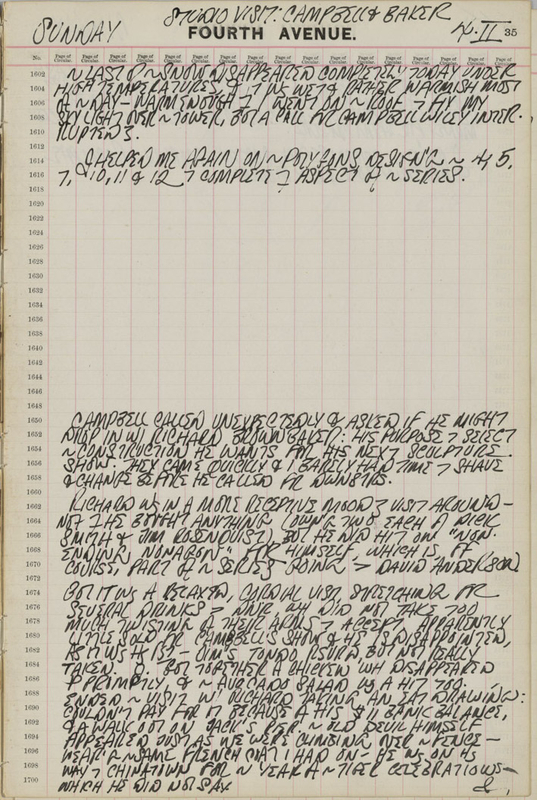 STUDIO VISIT: CAMPBELL & BAKER
SUNDAY FOURTH AVENUE. 4.II 35
No. Page of Circular. Page of Circular. Page of Circular. Page of Circular. Page of Circular. Page of Circular. Page of Circular. Page of Circular. Page of Circular. Page of Circular. Page of Circular. Page of Circular. Page of Circular. Page of Circular. Page of Circular. Page of Circular. Page of Circular.
1602 ~ LAST OF ~ SNOW DISAPPEARED COMPLETELY TODAY UNDER
1604 HIGH TEMPERATURES, & IT WS WET & RATHER WARMISH MOST
1606 OF ~ DAY – WARM ENOUGH I WENT ON ~ ROOF FIX MY
1608 SKYLIGHT OVER ~ TOWER, BUT A CALL CAMPBELL WILEY INTER-
1610 RUPTED.
1612
1614 HELPED ME AGAIN ON ~ POLYGONS, DESIGN'G ~ 4, 5,
1616 7, 10, 11 & 12 COMPLETE ASPECT OF ~ SERIES.
1618
1620
1622
1624
1626
1628
1630
1632
1634
1636
1638
1640
1642
1644
1646
1648
1650 CAMPBELL CALLED UNEXPECTEDLY & ASKED IF HE MIGHT
1652 DROP IN W/ RICHARD BROWN BAKER: HIS PURPOSE SELECT
1654 ~ CONSTRUCTION HE WANTS FOR HIS NEXT SCULPTURE
1656 SHOW. THEY CAME QUICKLY & I BARELY HAD TIME SHAVE
1658 & CHANGE BEFORE HE CALLED DOWNSTRS.
1660
1662 RICHARD WS IN A MORE RECEPTIVE MOOD VISIT AROUND –
1664 NOT HE BOUGHT ANYTHING (OWNG TWO EACH OF DICK
1666 SMITH & JIM ROSENQUIST), BUT HE DID HIT ON "NON-
1668 ENDING NONAGON" FOR HIMSELF, WHICH IS, OF
1670 COURSE, PART OF ~ SERIES GOING > DAVID ANDERSON
1672
1674 BUT IT WS A RELAXED, CORDIAL VISIT, STRETCHING
1676 SEVERAL DRINKS > DINR WH DID NOT TAKE TOO
1678 MUCH TWISTING OF THEIR ARMS ACCEPT. APPARENTLY
1680 LITTLE SOLD CAMPBELL'S SHOW & HE IS DISAPPOINTED,
1682 AS IT WS JIM'S TONDO RSVRD BUT NOT REALLY
1684 TAKEN. I GOT TOGETHER A CHICKEN WH DISAPPEARED
1686 PROMPTLY, & ~ AVOCADO SALAD WS A HIT TOO.
1688 ENDED ~ VISIT W/ RICHARD DRAWING:
1690 COULDN'T PAY FOR IT BECAUSE OF HIS $11 BANK BALANCE,
1692 & A WALL OUT ON JACK'S ROOF ~ OLD DEVIL HIMSELF
1694 APPEARED JUST AS WE WERE CLIMBING OVER ~ FENCE –
1696 WEAR'G ~ SAME FRENCH COAT I HAD ON – HE WS ON HIS
1698 WAY CHINATOWN FOR ~ YEAR OF ~ TIGER CELEBRATIONS –
1700 WHICH HE DID NOT SAY. &,